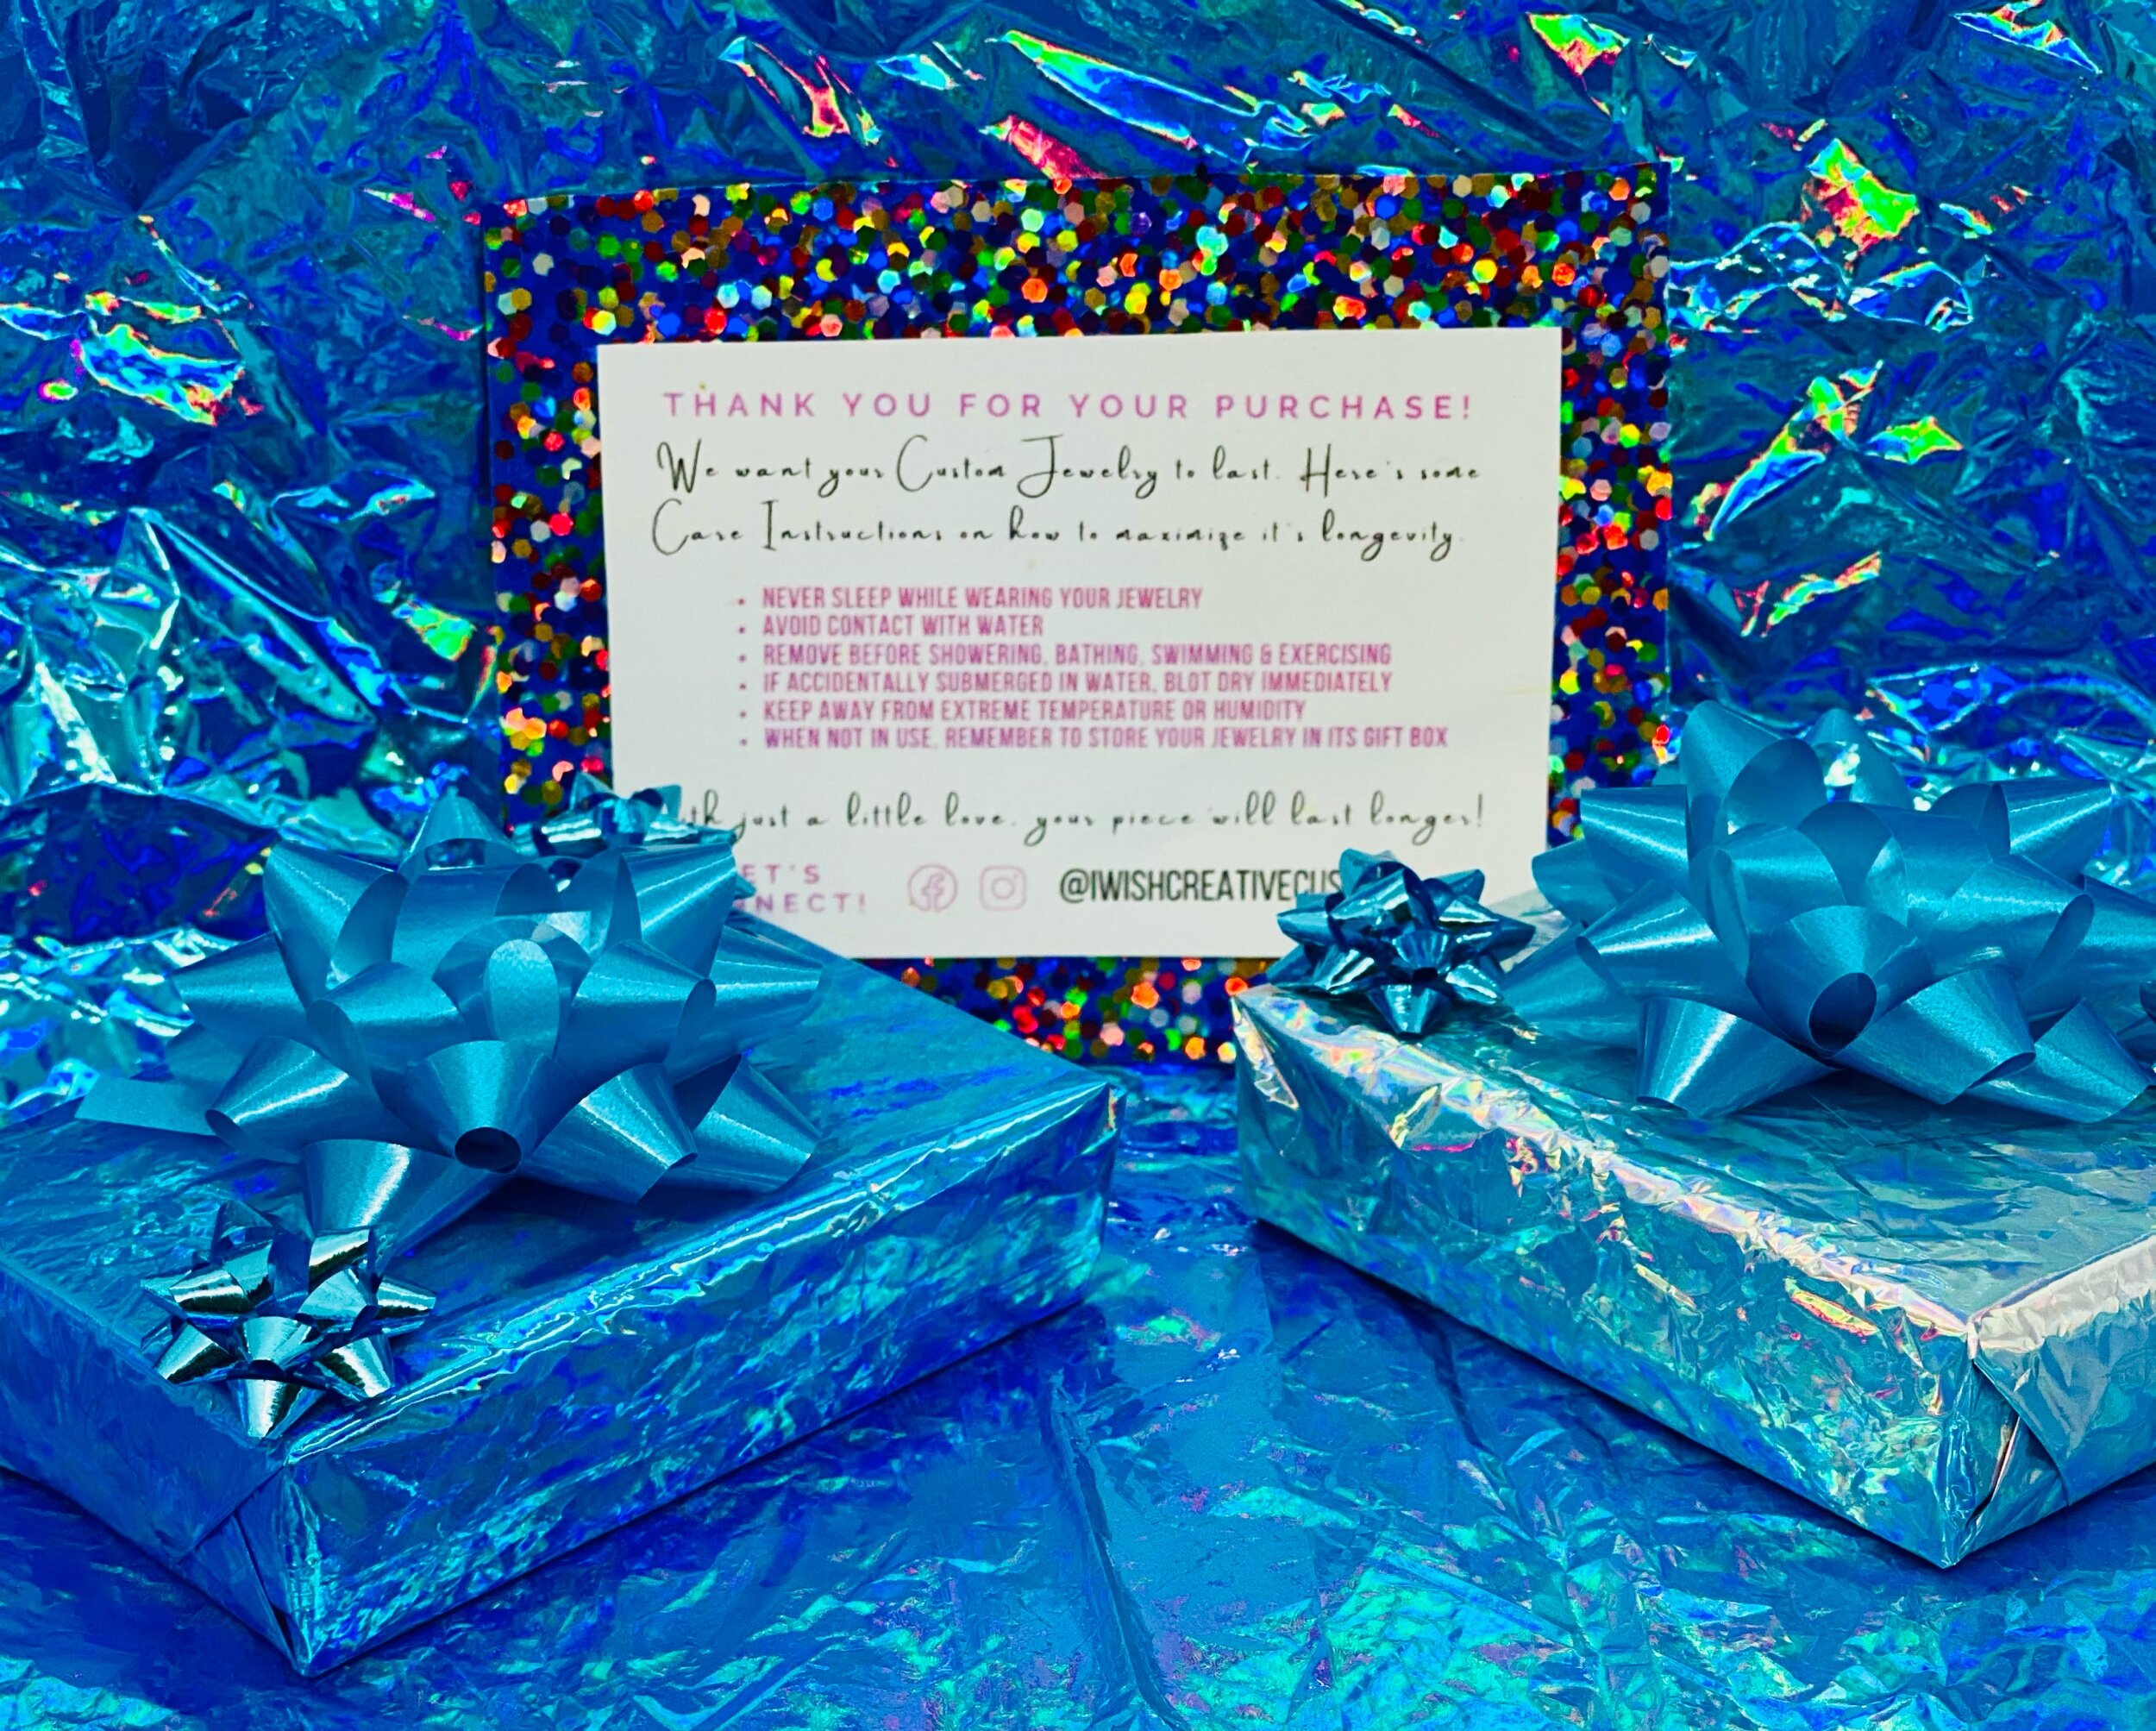 THANK YOU FOR YOUR PURCHASE!
We want your Custom Jewelry to last. Here's some
Care Instructions on how to maximize it's longevity.
• NEVER SLEEP WHILE WEARING YOUR JEWELRY
• AVOID CONTACT WITH WATER
• REMOVE BEFORE SHOWERING, BATHING, SWIMMING & EXERCISING
• IF ACCIDENTALLY SUBMERGED IN WATER, BLOT DRY IMMEDIATELY
• KEEP AWAY FROM EXTREME TEMPERATURE OR HUMIDITY
• WHEN NOT IN USE, REMEMBER TO STORE YOUR JEWELRY IN ITS GIFT BOX
ith just a little love, your piece will last longer!
ET'S
NNECT!
@IWISHCREATIVECUS